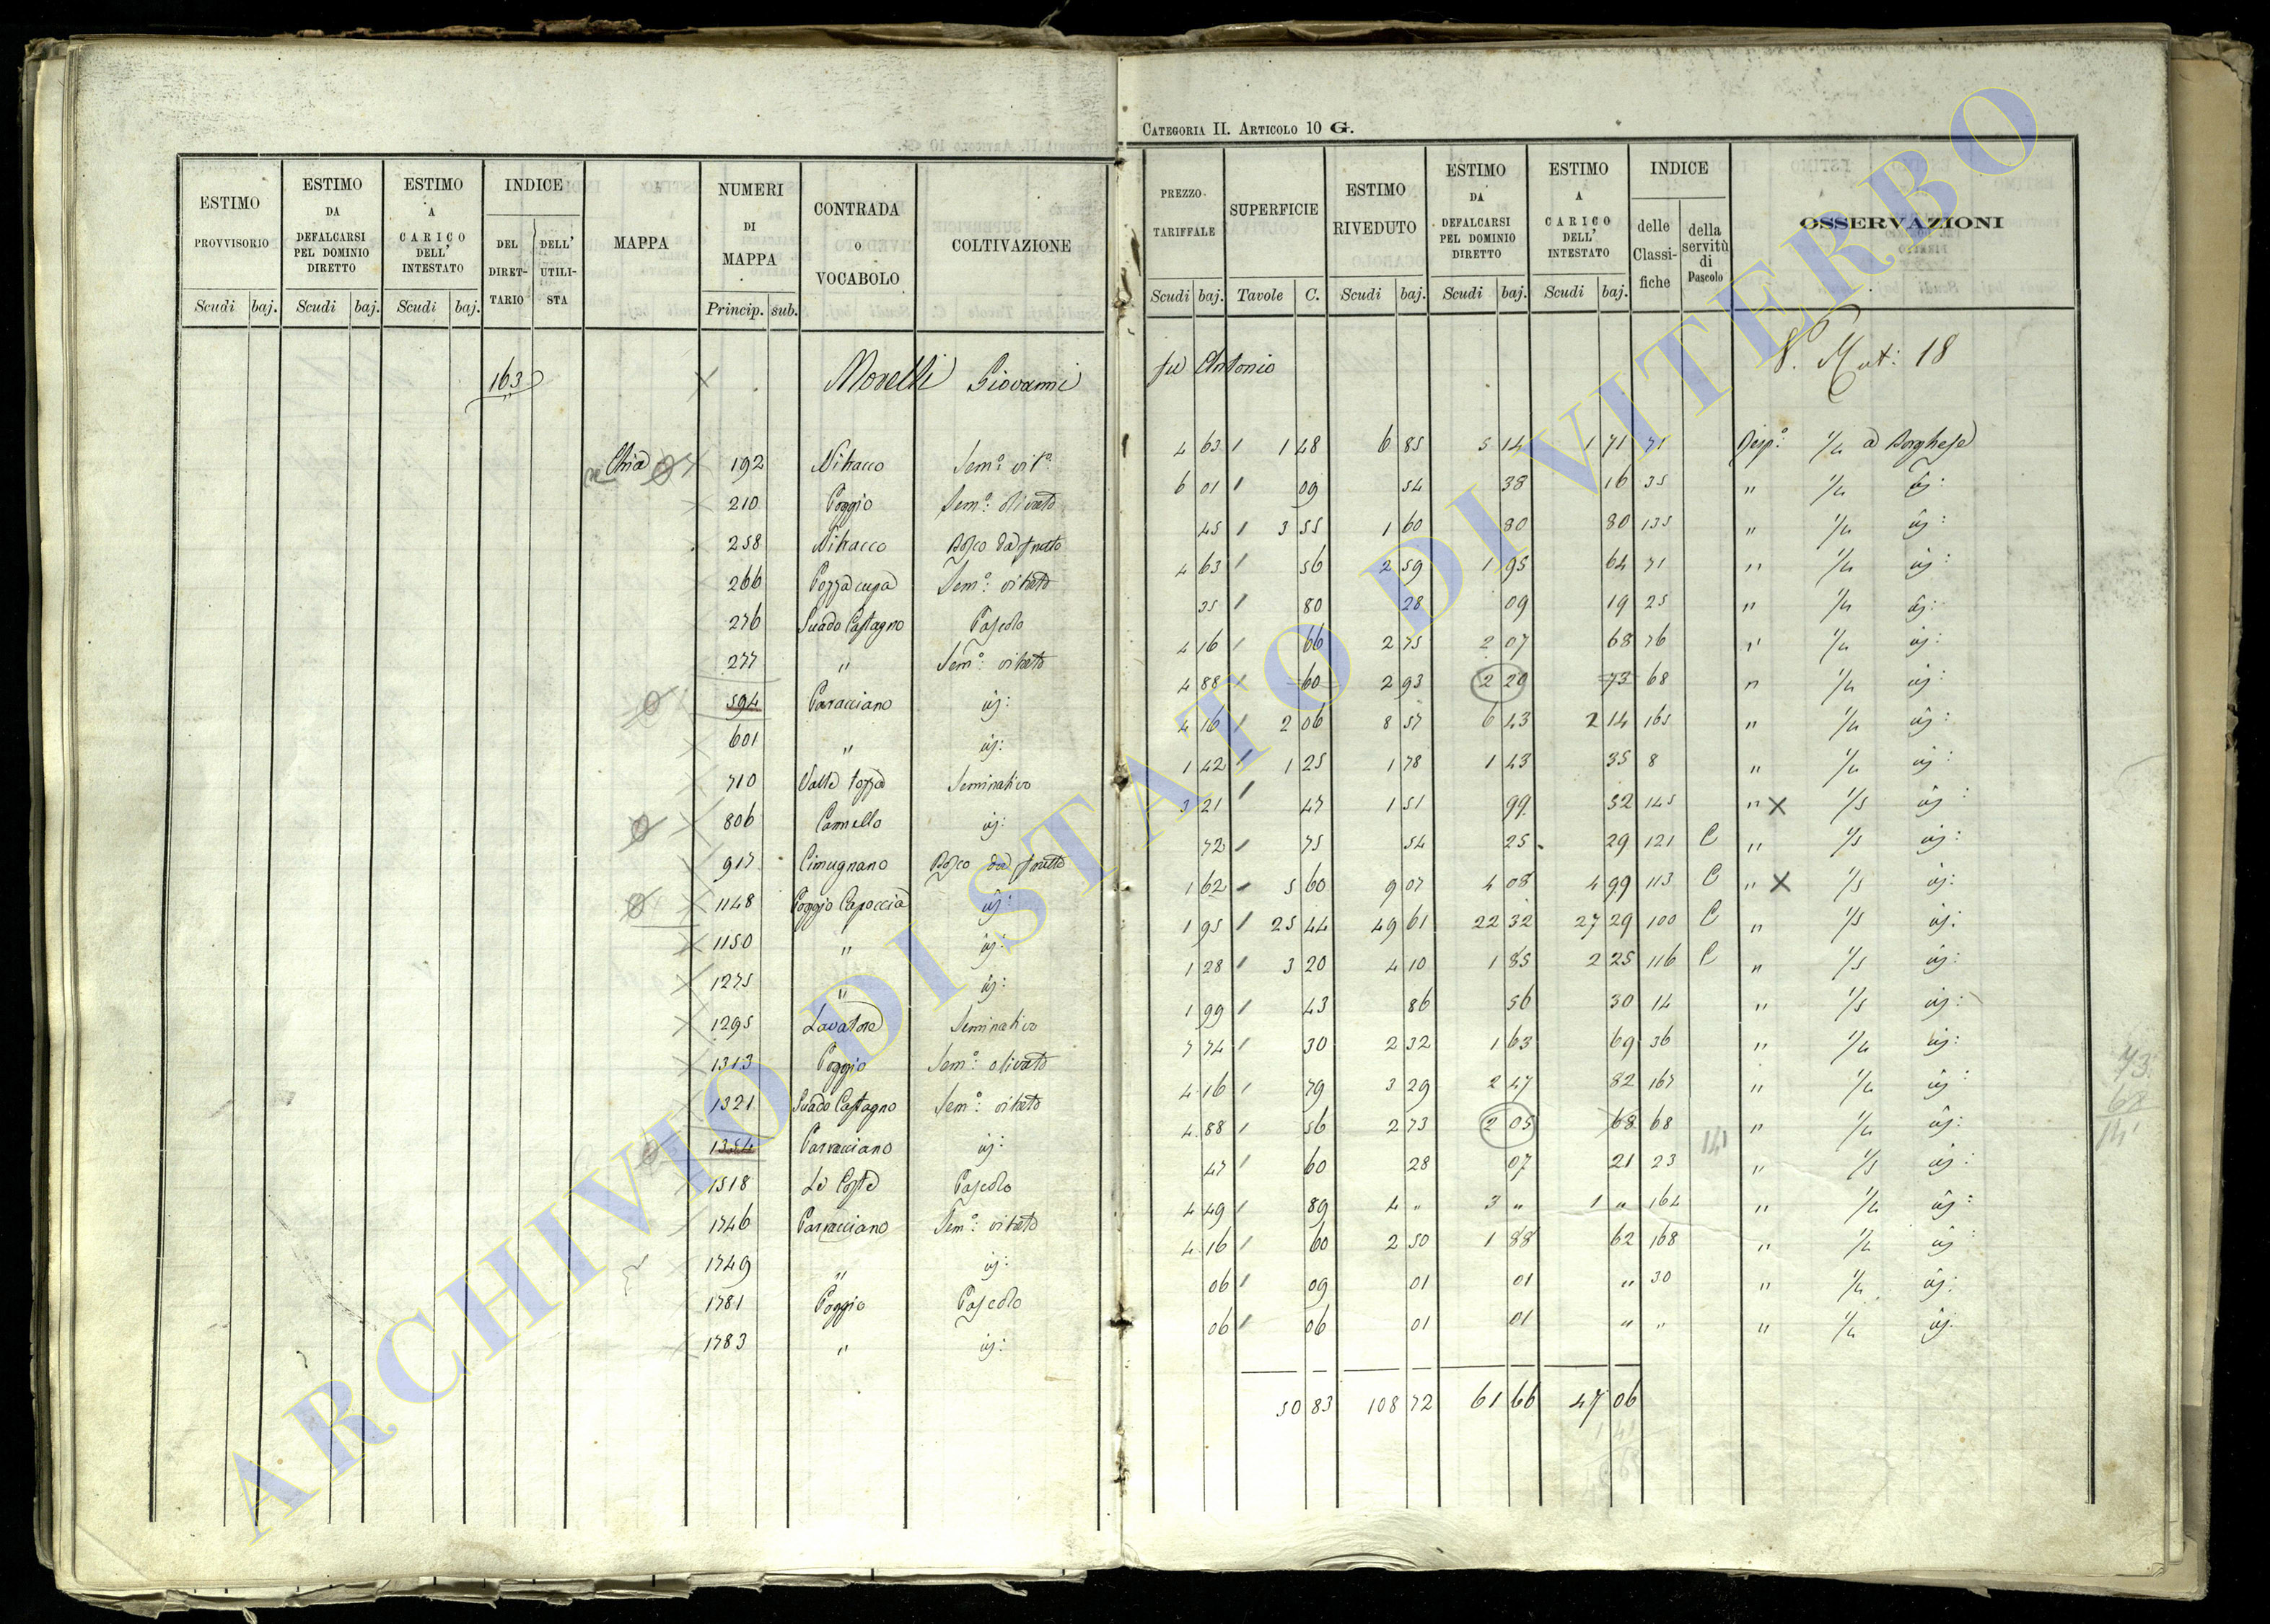 CATEGORIA II. ARTICOLO 10 G.
ESTIMO PROVVISORIO Scudi baj. ESTIMO DA DEFALCARSI PEL DOMINIO DIRETTO Scudi baj. ESTIMO A CARICO DELL' INTESTATO Scudi baj. INDICE DEL DIRETTARIO DELL' UTILISTA MAPPA NUMERI DI MAPPA Princip. sub. CONTRADA O VOCABOLO COLTIVAZIONE
PREZZO TARIFFALE Scudi baj. SUPERFICIE Tavole C. ESTIMO RIVEDUTO Scudi baj. ESTIMO DA DEFALCARSI PEL DOMINIO DIRETTO Scudi baj. ESTIMO A CARICO DELL' INTESTATO Scudi baj. INDICE delle Classifiche della servitù di Pascolo OSSERVAZIONI
163 Morelli Giovanni fu Antonio Mut: 18
Chia 192 Nitracco Semo: vito 4 63 1 48 6 85 5 14 1 71 71 Risp.o 1/4 a Borghese
210 Poggio Semo: olivato 6 01 09 54 38 16 35 " 1/4 iij:
258 Nitracco Bosco da frutto 45 3 55 1 60 80 80 135 " 1/4 iij:
266 Pozza cupa Semo: vitato 4 63 56 2 59 1 95 64 71 " 1/4 iij:
276 Suado Castagno Pascolo 35 80 28 09 19 25 " 1/4 iij:
277 " Semo: vitato 4 16 66 2 75 2 07 68 76 " 1/4 iij:
594 Parracciano iij: 4 88 60 2 93 2 20 73 68 " 1/4 iij:
601 " iij: 4 16 2 06 8 57 6 43 2 14 165 " 1/4 iij:
710 Valle tozza Seminativo 1 42 1 25 1 78 1 43 35 8 " 1/4 iij:
806 Camello iij: 3 21 47 1 51 99 52 145 " X 1/5 iij:
917 Cimugnano Bosco da frutto 72 75 54 25 29 121 C " 1/5 iij:
1148 Poggio Capoccia iij: 1 62 5 60 9 07 4 08 4 99 113 C " X 1/5 iij:
1150 " iij: 1 95 25 44 49 61 22 32 27 29 100 C " 1/5 iij:
1275 " iij: 1 28 3 20 4 10 1 85 2 25 116 C " 1/5 iij:
1295 Lavatore Seminativo 1 99 43 86 56 30 14 " 1/5 iij:
1313 Poggio Semo: olivato 7 74 30 2 32 1 63 69 36 " 1/4 iij:
1321 Suado Castagno Semo: vitato 4 16 79 3 29 2 47 82 167 " 1/4 iij:
1354 Parracciano iij: 4 88 56 2 73 2 05 68 68 141 " 1/4 iij:
1518 Le Coste Pascolo 47 60 28 07 21 23 " 1/5 iij:
1746 Parracciano Semo: vitato 4 49 89 4 " 3 " 1 " 164 " 1/4 iij:
1749 " iij: 4 16 60 2 50 1 88 62 168 " 1/4 iij:
1781 Poggio Pascolo 06 09 01 01 " 30 " 1/4 iij:
1783 " iij: 06 06 01 01 " " " 1/4 iij:
50 83 108 72 61 66 47 06
73
68
141
ARCHIVIO DI STATO DI VITERBO